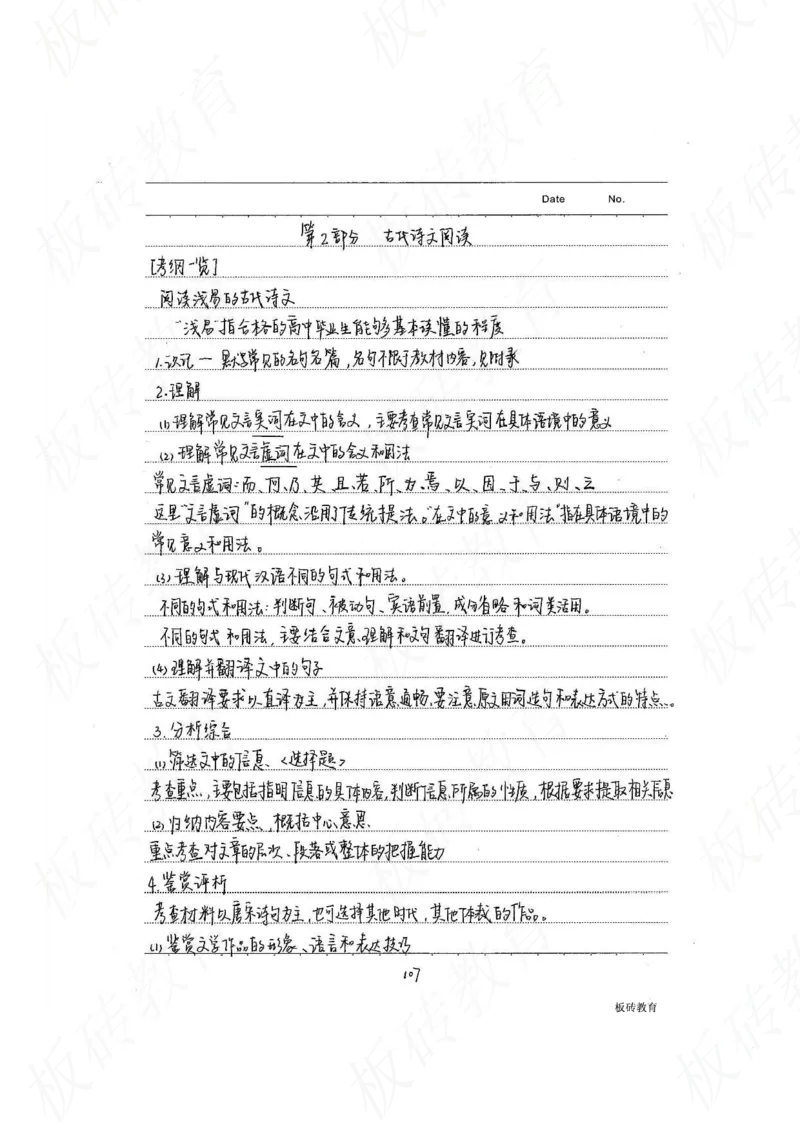 Date No.
第2部分 古代诗文阅读
[考纲一览]
阅读浅易的古代诗文
"浅易"指合格的高中毕业生能够基本读懂的程度
1.识记 — 默写常见的名句名篇,名句不限于教材内容,见附录
2.理解
(1)理解常见文言实词在文中的含义,主要考查常见文言实词在具体语境中的意义
(2)理解常见文言虚词在文中的含义和用法
常见文言虚词:而、何、乃、其、且、若、所、为、焉、以、因、于、与、则、之
这里"文言虚词"的概念沿用了传统提法。"在文中的意义和用法"指在具体语境中的
常见意义和用法。
(3)理解与现代汉语不同的句式和用法。
不同的句式和用法:判断句、被动句、宾语前置,成分省略和词类活用。
不同的句式和用法,主要结合文意理解和文句翻译进行考查。
(4)理解并翻译文中的句子
古文翻译要求以直译为主,并保持语意通畅,要注意原文用词造句和表达方式的特点。
3.分析综合
(1)筛选文中的信息、<选择题>
考查重点,主要包括指明信息的具体内容,判断信息所属的性质,根据要求提取相关信息
(2)归纳内容要点,概括中心意思
重点考查对文章的层次、段落或整体的把握能力
4.鉴赏评析
考查材料以唐宋诗句为主,也可选择其他时代,其他体裁的作品。
(1)鉴赏文学作品的形象、语言和表达技巧
107
板砖教育